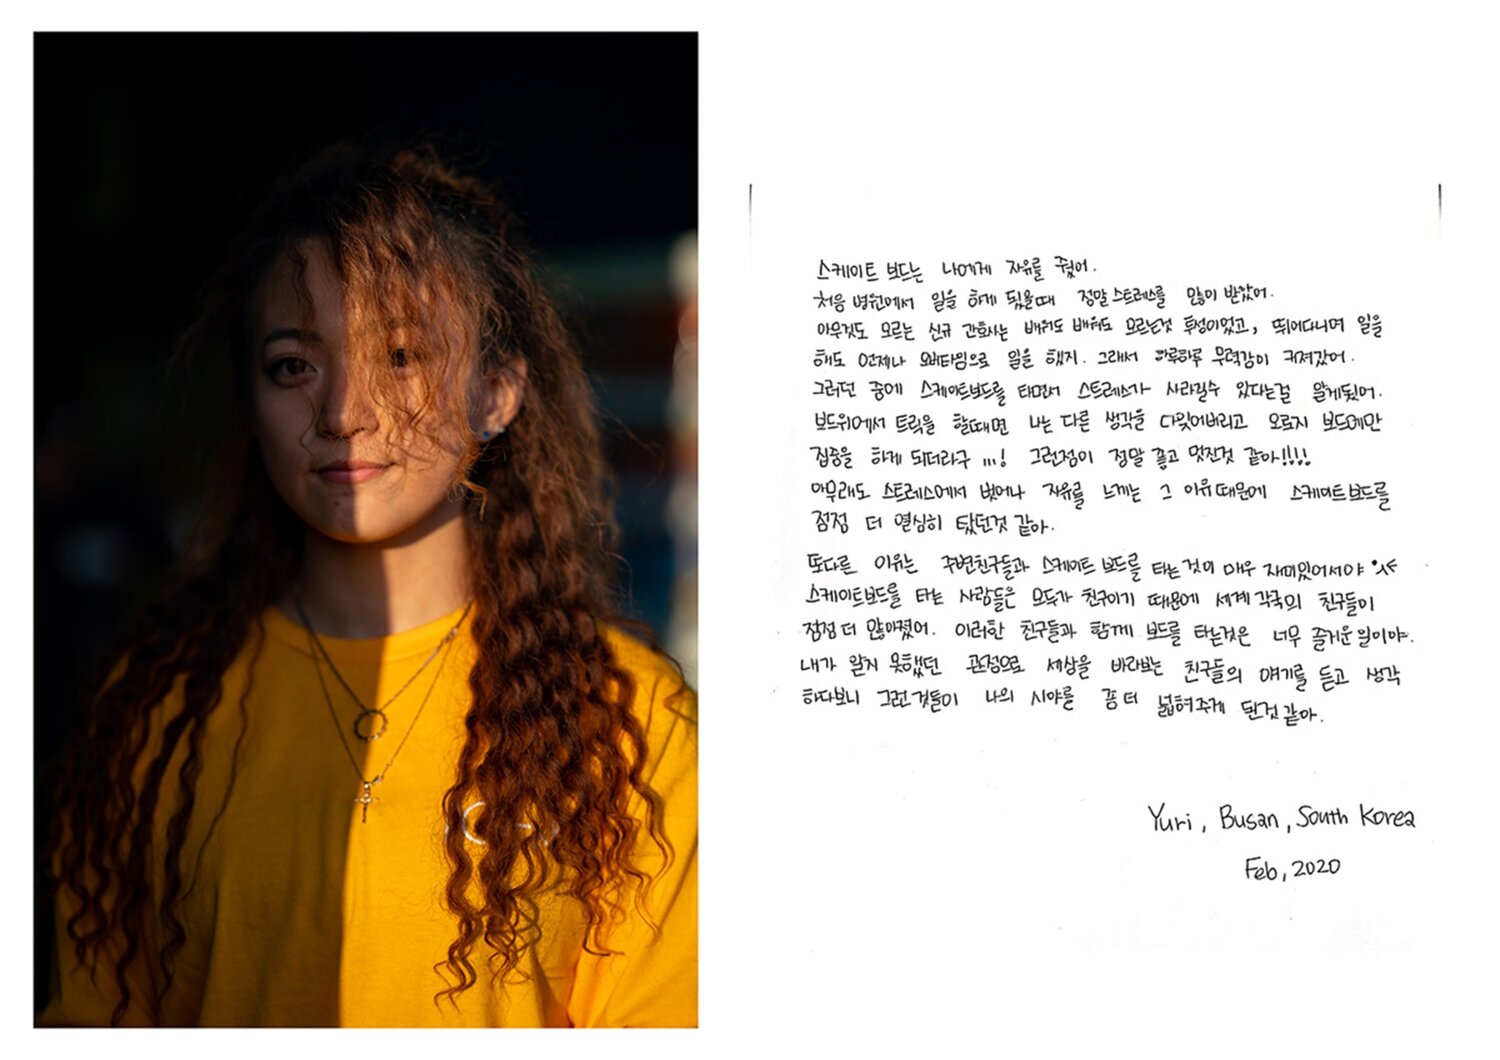 스케이트 보드는 나에게 자유를 줬어.
처음 병원에서 일을 하게 됬을때 정말 스트레스를 많이 받았어.
아무것도 모르는 신규 간호사는 배워도 배워도 모르는것 투성이었고, 뛰어다니며 일을
해도 언제나 오버타임으로 일을 했지. 그래서 하루하루 무력감이 커져갔어.
그러던 중에 스케이트보드를 타면서 스트레스가 사라질수 있다는걸 알게됬어.
보드위에서 트릭을 할때면 나는 다른 생각을 다잊어버리고 오로지 보드에만
집중을 하게 되더라구 ...! 그런점이 정말 좋고 멋진것 같아!!!!
아무래도 스트레스에서 벗어나 자유를 느끼는 그 이유때문에 스케이트보드를
점점 더 열심히 탔던것 같아.
또다른 이유는 주변친구들과 스케이트 보드를 타는것이 매우 재미있어서야
스케이트보드를 타는 사람들은 모두가 친구이기 때문에 세계각국의 친구들이
점점 더 많아졌어. 이러한 친구들과 함께 보드를 타는것은 너무 즐거운일이야.
내가 알지 못했던 관점으로 세상을 바라보는 친구들의 얘기를 듣고 생각
하다보니 그런것들이 나의 시야를 좀 더 넓혀주게 된것같아.
Yuri, Busan, South Korea
Feb, 2020